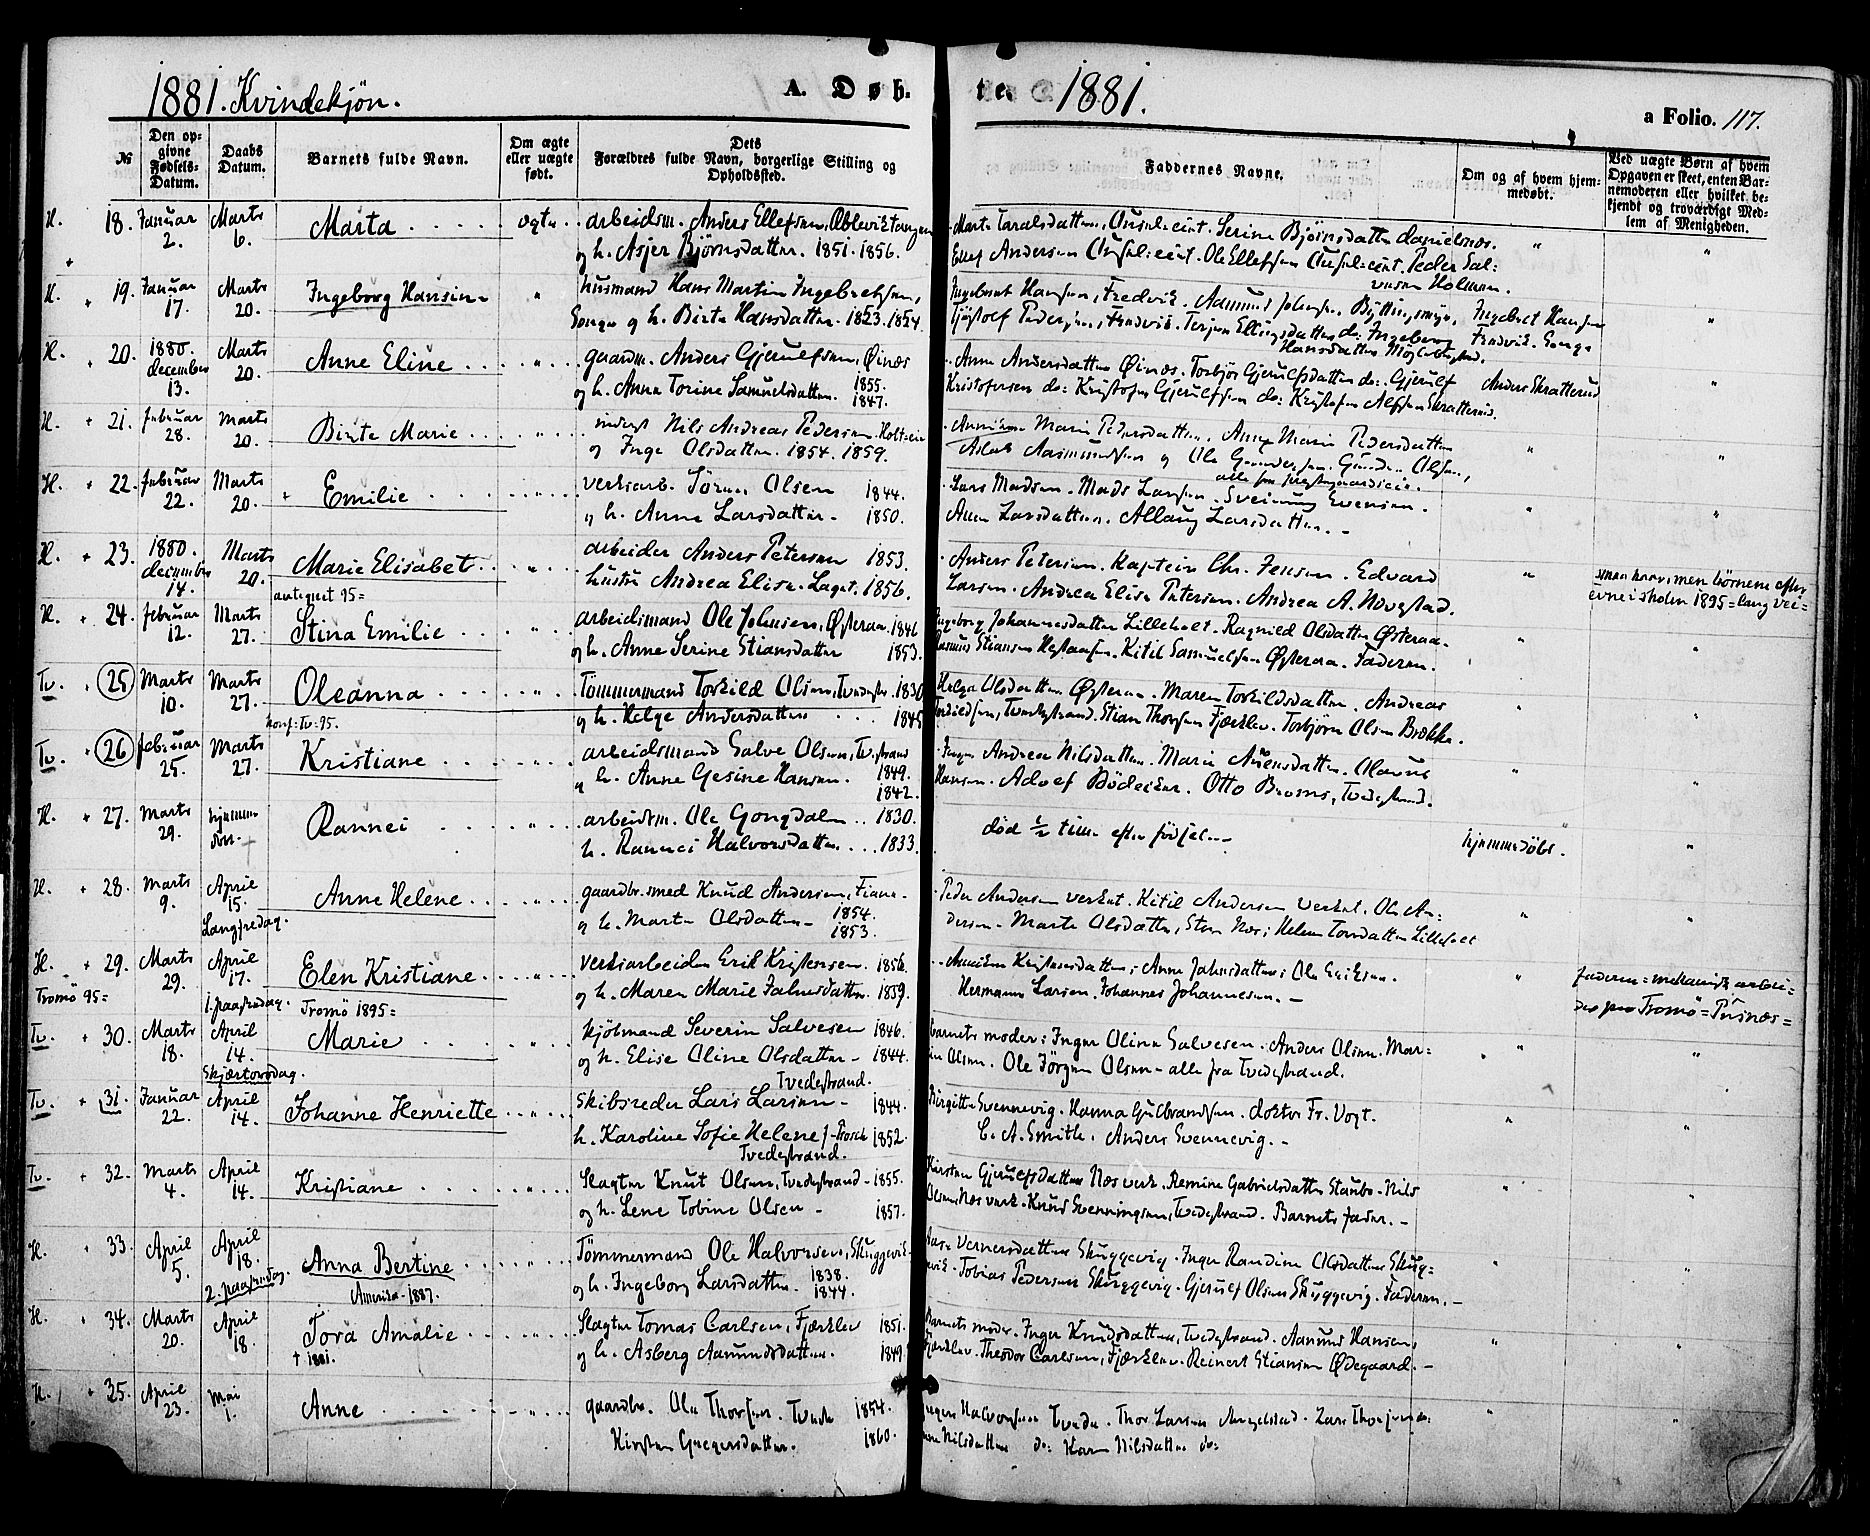 1881. Kvindekjön.
A. Døb-
te.
1881.
a Folio. 117.
№
Den opgivne Fødsels-Datum.
Daabs Datum.
Barnets fulde Navn.
Om ægte eller uægte født.
Dets Forældres fulde Navn, borgerlige Stilling og Opholdssted.
Faddernes Navne.
Om og af hvem hjemmedøbt.
Ved uægte Børn af hvem Opgaven er skeet, enten Barnemoderen eller hvilket bekjendt og troværdigt Medlem af Menigheden.
H. 18. Januar 2. Marts 6. Marta ægte arbeidsm. Anders Ellefsen,
og h. Asjer Bjørnsdatter. 1851. 1856.
Serine Bjørnsdatter danielsnæs.
Ellef Andersen Ole Ellefsen Peder Sal=
vesen Holmen.
H. 19. Januar 17. Marts 20. Ingeborg Hansine " husmand Hans Martin Ingebretsen,
Songe og h. Birte Hansdatter. 1823. 1854.
Ingebret Hansen, Fredvik. Aamund Johnsen Ingebret Hansen
Tjøstolf Pedersen, Fredvik. Terjer Ellingsdatter do: Ingeborg Fredvik. Songe
Hansdatter
H. 20. 1880. december 13. Marts 20. Anne Eline " gaardm. Anders Gjerulfsen, Øinæs
og h. Anne Torine Samuelsdatter. 1855. 1847.
Anne Andersdatter Øinæs. Torbjør Gjerulfsdatter do: Gjerulf Anders Skratterud
Kristofersen do: Kristofer Gjerulfsen do: Kristofer Alfsen Skratterud.
H. 21. februar 28. Marts 20. Birte Marie " inderst Nils Andreas Pedersen
og Inge Olsdatter. 1854. 1859.
Marie Pedersdatter. Anne Marie Pedersdatter
Aslak Aasmundsen og Ole Gundersen. Gunder Olsen,
alle fra
H. 22. februar 22. Marts 20. Emilie " verksarb. Olsen 1844.
og h. Anne Larsdatter. 1850.
Lars Madsen. Mads Larsen. Sveinung Evensen.
Anne Larsdatter. Allaug Larsdatter.
H. 23. 1880. december 14. Marts 20. Marie Elisabet " arbeider Anders Petersen 1853.
hustru Andrea Elise Laget. 1856.
Anders Petersen. Kaptein Chr. Jensen. Edvard
Larsen. Andrea Elise Petersen. Andrea A. Novestad.
H. 24. februar 12. Marts 27. Stina Emilie " arbeidsmand Ole Johnsen, Østeraa 1846
og h. Anne Serine Stiansdatter 1853.
Ingeborg Johannesdatter Lilleholt. Ragnild Olsdatter Østeraa.
Rasmus Stiansen Kitil Samuelsen Østeraa. Faderen.
Tv. 25 Marts 10. Marts 27. Oleanna " Tømmermand Torkild Olsen, Tvedestr. 1830
konf: Tv: 95.
og h. Helge Andersdatter 1845
Helga Olsdatter Østeraa. Maren Torkildsdatter. Andreas
Torkildsen, Tvedestrand. Stian Thorsen Fjærklev. Torbjørn Olsen Brække.
Tv. 26 februar 25. Marts 27. Kristiane " arbeidsmand Salve Olsen, Tvedestrand
og h. Anne Gesine Hansen. 1849. 1842.
Andrea Nilsdatter. Marie Olaves
Hansen. Adolf Bödeiker. Otto Broms, Tvedestrand.
H. 27. Marts 29. hjemmedøbt Rannei " arbeidsm. Ole Gongdalen 1830.
h. Rannei Halvorsdatter 1833.
død ½ time efter fødsel. hjemmedöbt.
H. 28. Marts 9. April 15. Langfredag. Anne Helene " gaardbr. smed Knud Andersen, Fiane
og h. Marte Olsdatter 1854. 1853.
Peder Andersen verket. Kitil Andersen verket. Ole An=
dersen. Marte Olsdatter, Stea Næs; Helene Torsdatter Lilleholt
H. 29. Marts 29. April 17. 1. paaskedag. Elen Kristiane " verksarbeider Erik Kristensen. 1856.
Tromö 95= Tromö 1895= og h. Maren Marie Jahnsdatter. 1859.
Kristensdatter; Anne Jahnsdatter; Ole Eriksen.
Hermann Larsen. Johannes Johannesen.
faderen = mekanisk arbei=
der paa Tromö = Pusnæs =
Tv. 30. Marts 18. April 14. Skjærtorsdag. Marie " skjölmand Severin Salvesen 1846.
og h. Elise Oline Olsdatter 1844.
Tvedestrand.
Barnets moder: Inger Oline Salvesen. Anders Olsen. Mar=
Olsen. Ole Jörgen Olsen alle fra Tvedestrand.
Tv. 31. Januar 22. April 14. Johanne Henriette " Skibsreder Lars Larsen 1844.
h. Karoline Sofie Helene f. Prosch 1852.
Tvedestrand.
Birgitte Svennevig. Hanna Gulbrandsen. doktor Fr. Vogt.
C. A. Smith. Anders Svennevig.
Tv. 32. Marts 4. April 14. Kristiane " Slagter Knut Olsen, Tvedestrand 1855.
og h. Lene Tobine Olsen 1857.
Kirsten Gjerulfsdatter Næs verk. Remine Gabrielsdatter Staubo. Nils
Olsen, Næs verk. Knud Svenningsen, Tvedestrand. Barnets fader.
H. 33. April 5. April 18. 2. paaskedag. Anna Bertine " Tømmermand Ole Halvorsen, Skuggevik
Amerika 1887. og h. Ingeborg Larsdatter 1838. 1844.
Vernersdatter Skuggevig. Inger Randine Olsdatter Skug=
gevik. Tobias Pedersen Skuggevig. Gjerulf Olsen Skuggevig. Faderen.
H. 34. Marts 20. April 18. Tora Amalie " Slagter Tomas Carlsen, Fjærklev 1851.
† 1881. og h. Asberg Aamundsdatter. 1849
Barnets moder. Inger Knudsdatter, Tvedestrand. Aanund Hansen,
Fjærklev. Theodor Carlsen, Fjærklev. Reinert Stiansen Ødegaard.
H. 35. April 23. Mai 1. Anne " gaardbr. Ole Thorsen. Tvede 1854.
Kirsten Gregersdatter. 1860.
Halvorsen Tvede. Thor Larsen Lars
Nilsdatter do: Karen Nilsdatter do: